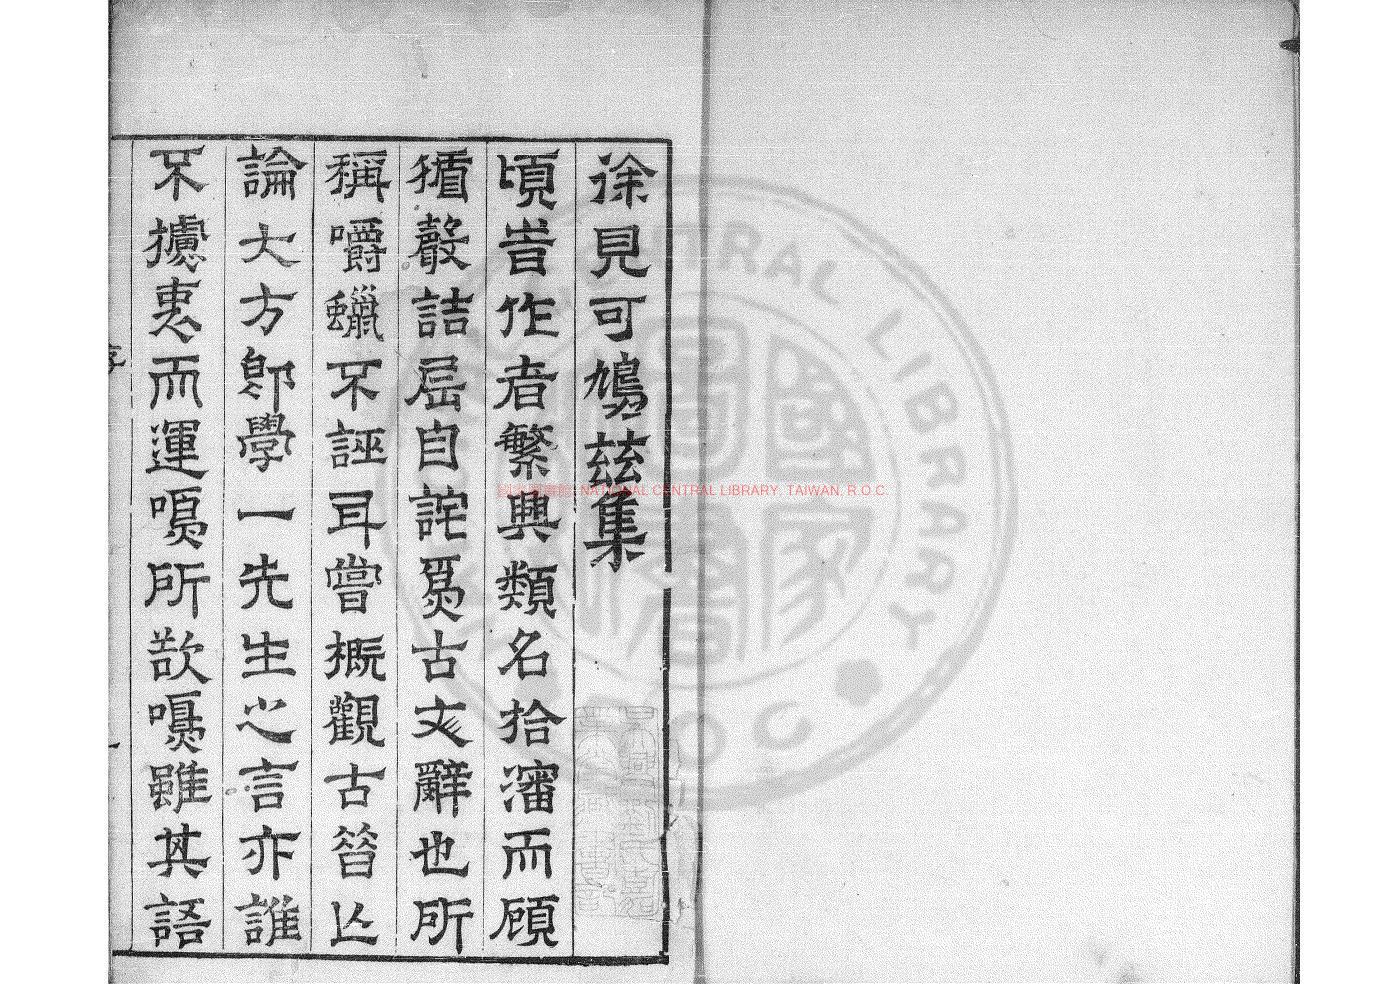 徐見可鳩茲集
頃旹作者繁興類名拾瀋而顧
循聲詰屈自詫爲古文辭也所
稱嚼蠟不誣耳嘗概觀古簪亾
論大方卽學一先生之言亦誰
不攄衷而運嗓所欲嗓雖其語
序
一
NATIONAL CENTRAL LIBRARY, TAIWAN, R.O.C.